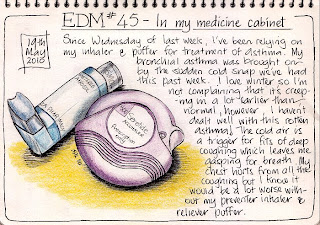 EDM #45 - In my medicine cabinet
19th
May
2010
Since Wednesday of last week, I've been relying on
my inhaler & puffer for treatment of asthma. My
bronchial asthma was brought on
by the sudden cold snap we've had
this past week. I love winter so I'm
not complaining that it's creep-
ing in a lot earlier than
normal, however, I haven't
dealt well with this rotten
asthma! The cold air is
a trigger for fits of deep
coughing which leaves me
gasping for breath. My
chest hurts from all the
coughing but I know it
would be a lot worse with-
out my preventer inhaler &
reliever puffer.